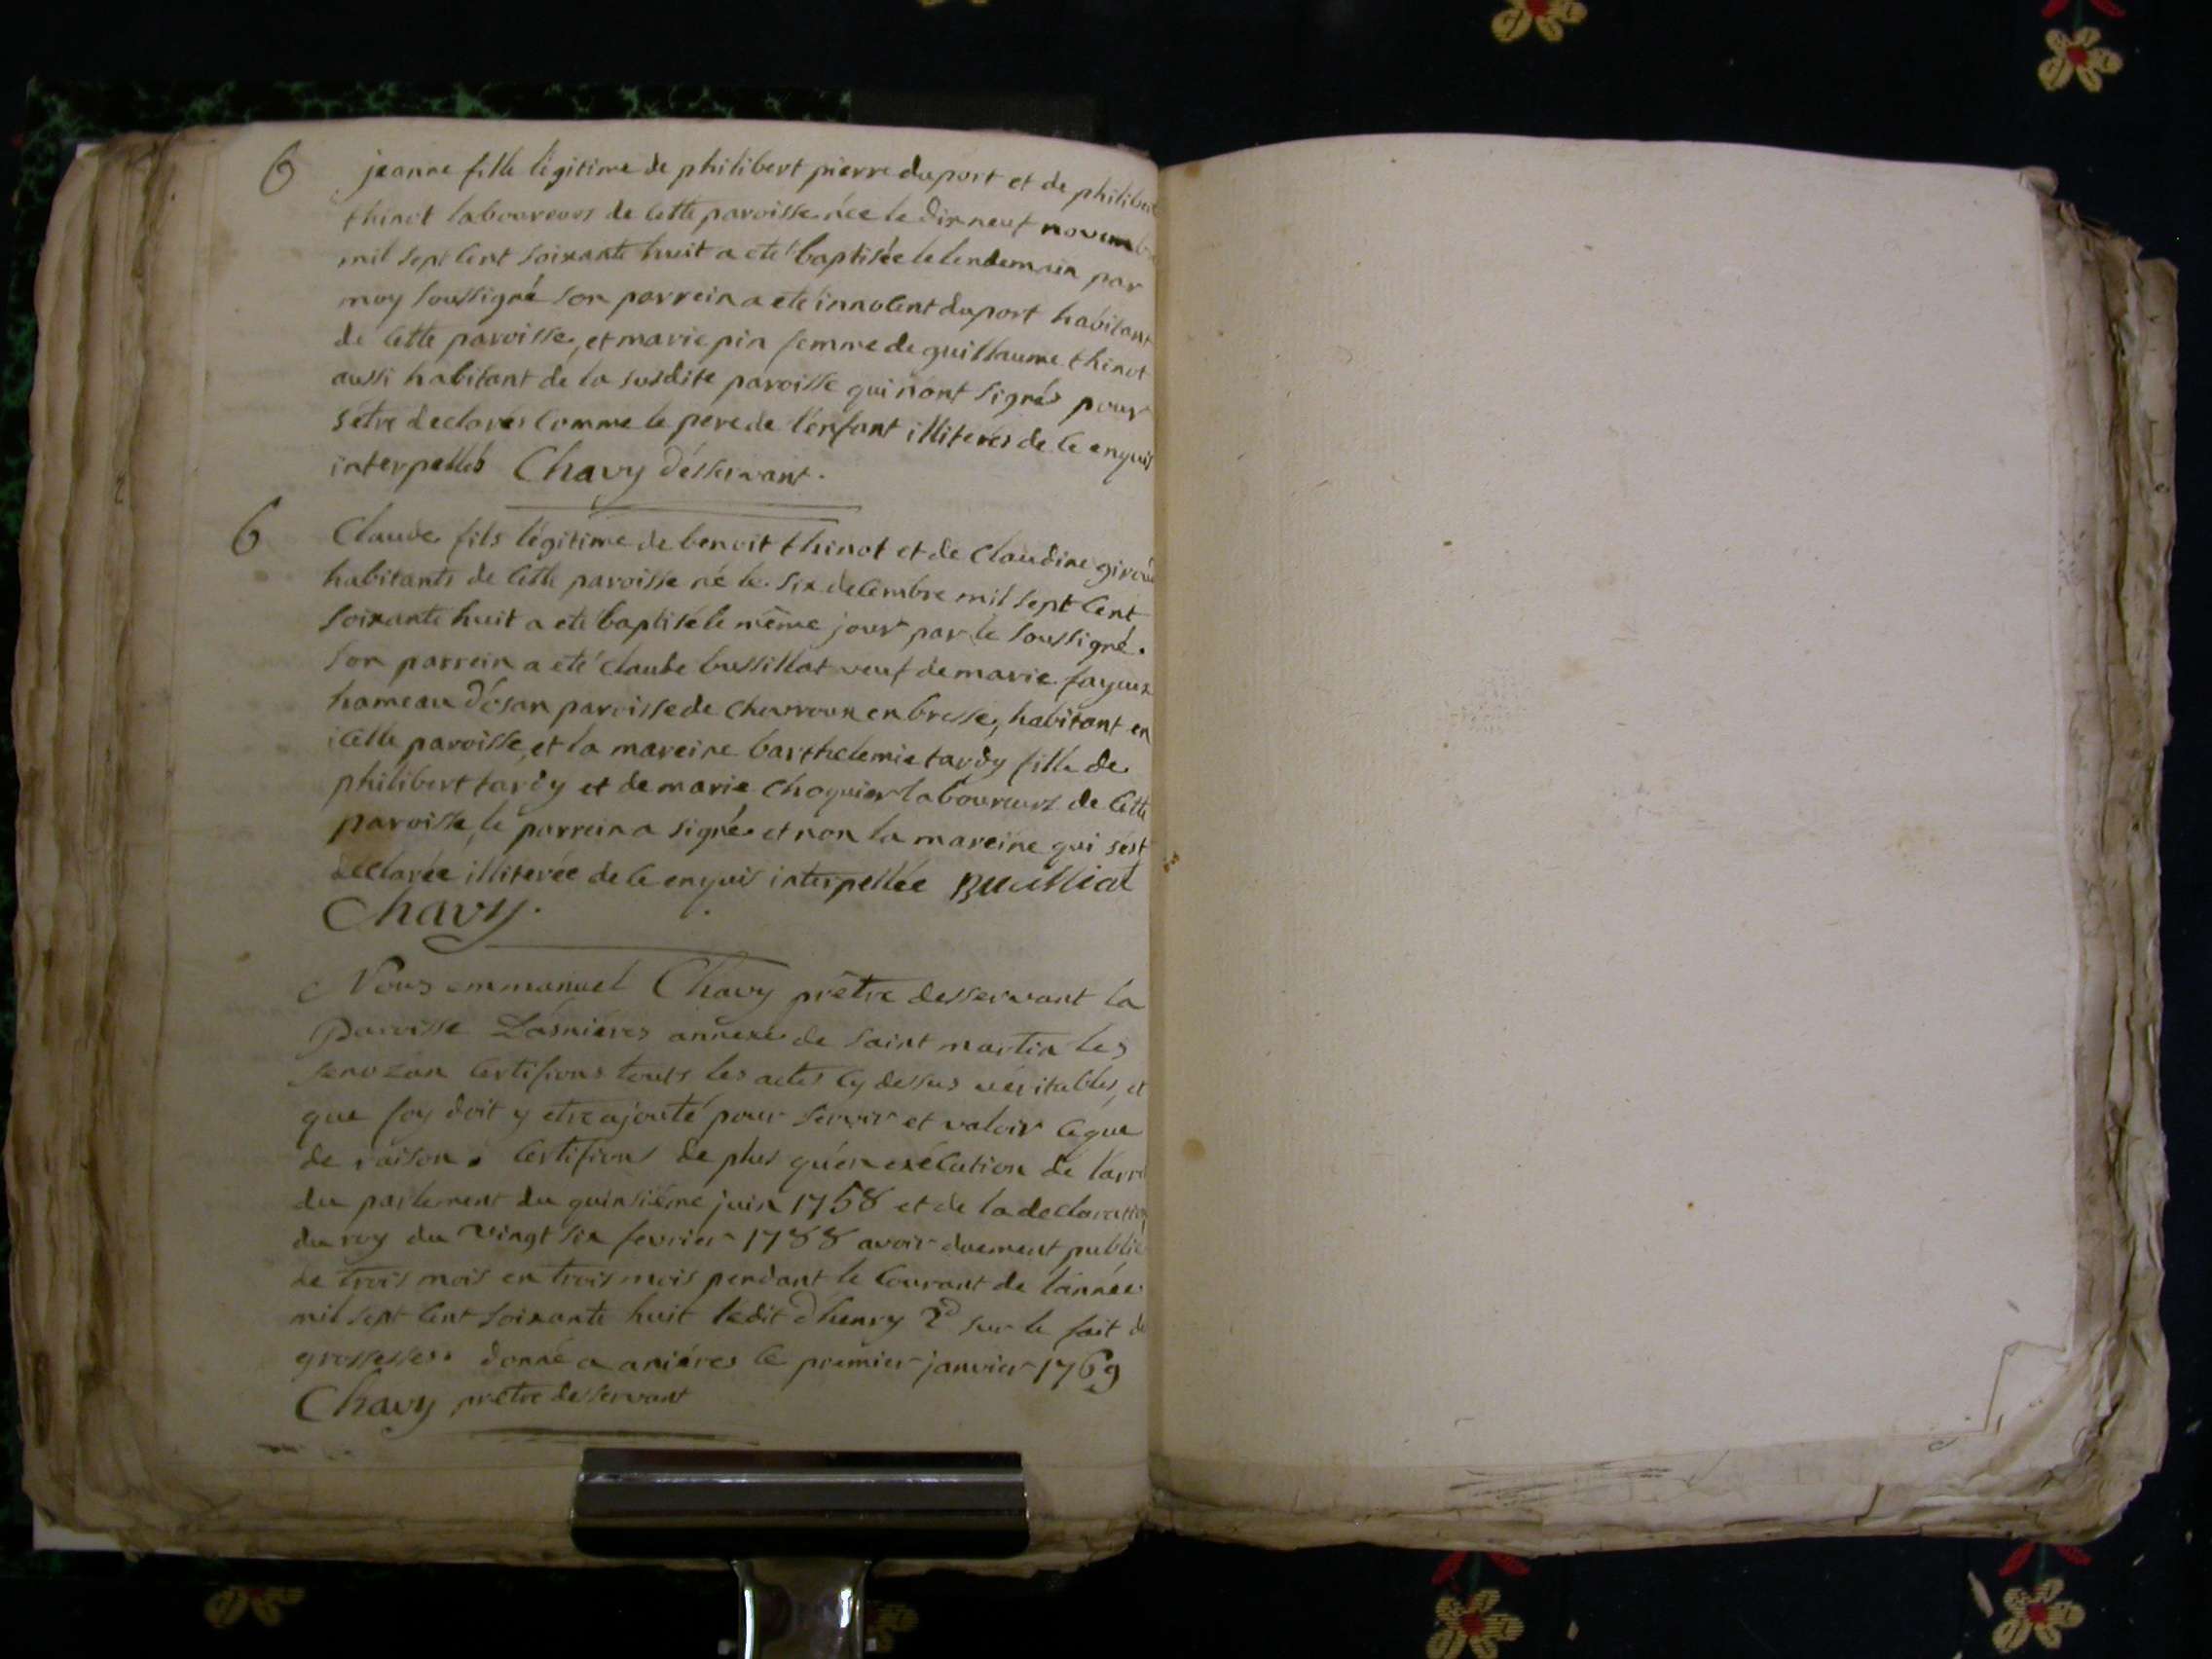 6 jeanne fille légitime de philibert pierre duport et de philiber
thinot laboureurs de cette paroisse née le dix neuf novemb
mil sept cent soixante huit a eté baptisée le lendemain par
moy soussigné son parrein a eté innocent duport habitant
de cette paroisse, et marie pin femme de guillaume thinot
aussi habitant de la susdite paroisse qui n'ont signés pour
s'etre declarés comme le pere de l'enfant illiterés de ce enquis
interpellés Chavy désservant.
6 Claude fils légitime de benoit thinot et de Claudine girou
habitants de cette paroisse né le six decembre mil sept cent
soixante huit a eté baptisé le même jour par le soussigné.
son parrein a eté Claude bussillat veuf de marie
hameau d'ósan paroisse de chevroux en bresse, habitant en
icelle paroisse, et la mareine barthelemie tardy fille de
philibert tardy et de marie Choquier laboureurs de cette
paroisse, le parrein a signé et non la mareine qui s'est
declarée illiterée de ce enquis interpellée
Chavy.
Nous emmanuel Chavy prêtre desservant la
Paroisse d'asnières annexe de saint martin les
senozan certifions touts les actes cy dessus véritables, et
que foy doit y etre ajouté pour servir et valoir ce que
de raison. Certifions de plus qu'en exécution de l'arre
du parlement du quinsième juin 1758 et de la declaration
du roy du vingt six fevrier 1788 avoir duement publié
de trois mois en trois mois pendant le Courant de l'année
mil sept cent soixante huit l'édit d'henry 2d sur le fait de
grossesses. donné a aniéres ce premier janvier 1769
Chavy prêtre desservant